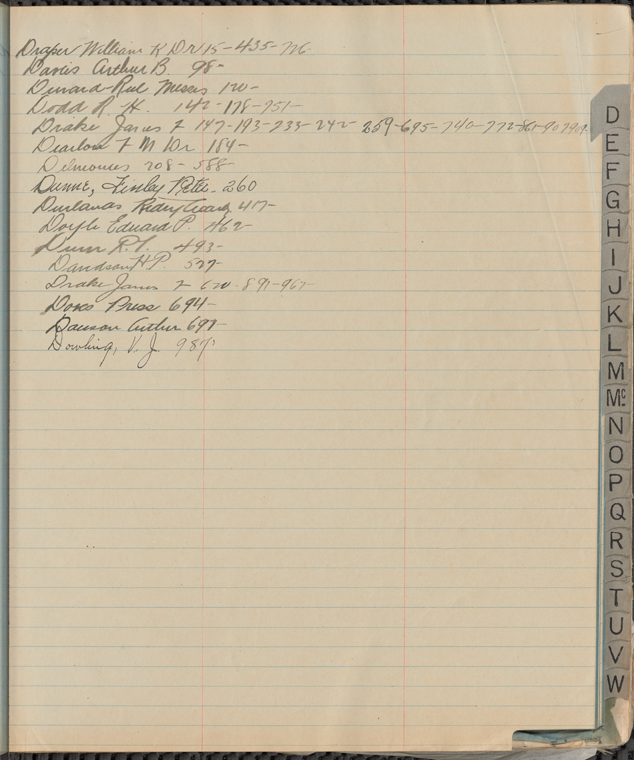 Draper William K Dr 15-435-
Davies Arthur B. 98-
Durand-Ruel Messrs 120-
Dodd R. H. 142-178-751-
Drake James F 147-193-233-242- 259-695-740-772-861-
Dearlove F M Dr 184-
Delmonicos 208-588-
Dunne, Finley Peter. 260
Durlands Riding 417-
Doyle Edward P. 462-
Dunn R. 493-
Davidson H P. 527-
Drake James F 891-
Doves Press 694-
Dawson Arthur 697-
Dowling, V. J. 987
D
E
F
G
H
I
J
K
L
M
Mc
N
O
P
Q
R
S
T
U
V
W